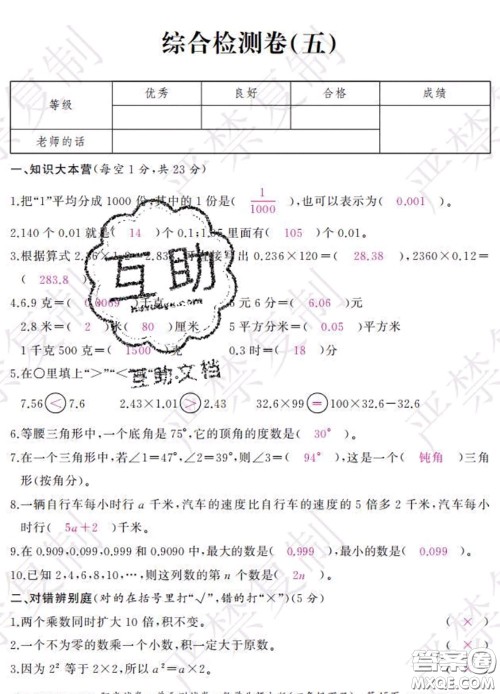 综合检测卷(五)
等级 优秀 良好 合格 成绩
老师的话
一、知识大本营(每空1分,共23分)
1.把“1”平均分成1000份,其中的1份是( 1/1000 ),也可以表示为( 0.001 )。
2.140个0.01就是( 14 )个0.1;1.05里面有( 105 )个0.01。
3.根据算式 写出0.236×120=( 28.38 ),2360×0.12=
( 283.8 )
4.6.9克=( 0.0069 )千克 元6分=( 6.06 )元
2.8米=( 2 )米( 80 )厘米 5平方分米=( 0.05 )平方米
1千克500克=( 1500 )克 0.3时=( 18 )分
5.在○里填上“>”“<
7.56<7.6 2.43×1.01>2.43 32.6×99=100×32.6-32.6
6.等腰三角形中,一个底角是75°,它的顶角的度数是( 30° )。
7.在一个三角形中,若∠1=47°,∠2=39°,则∠3=( 94° ),这是一个( 钝角 )三角
形(按角分)。
8.一辆自行车每小时行a千米,汽车的速度比自行车的速度的5倍多2千米,汽车每小
时行( 5a+2 )千米。
9.在0.909,0.099,0.999和0.9090中,最大的数是( 0.999 ),最小的数是( 0.099 )。
10.已知2,4,6,8,10,…,则这列数的第n个数是( 2n )。
二、对错辨别庭(对的在括号里打“√”,错的打“×”)(5分)
1.两个乘数同时扩大10倍,积不变。 ( × )
2.一个不为零的数乘一个小数,积一定小于原数。 ( × )
3.因为2²等于2×2,所以a²=a×2。 ( × )
严禁复制
互助
互助文档